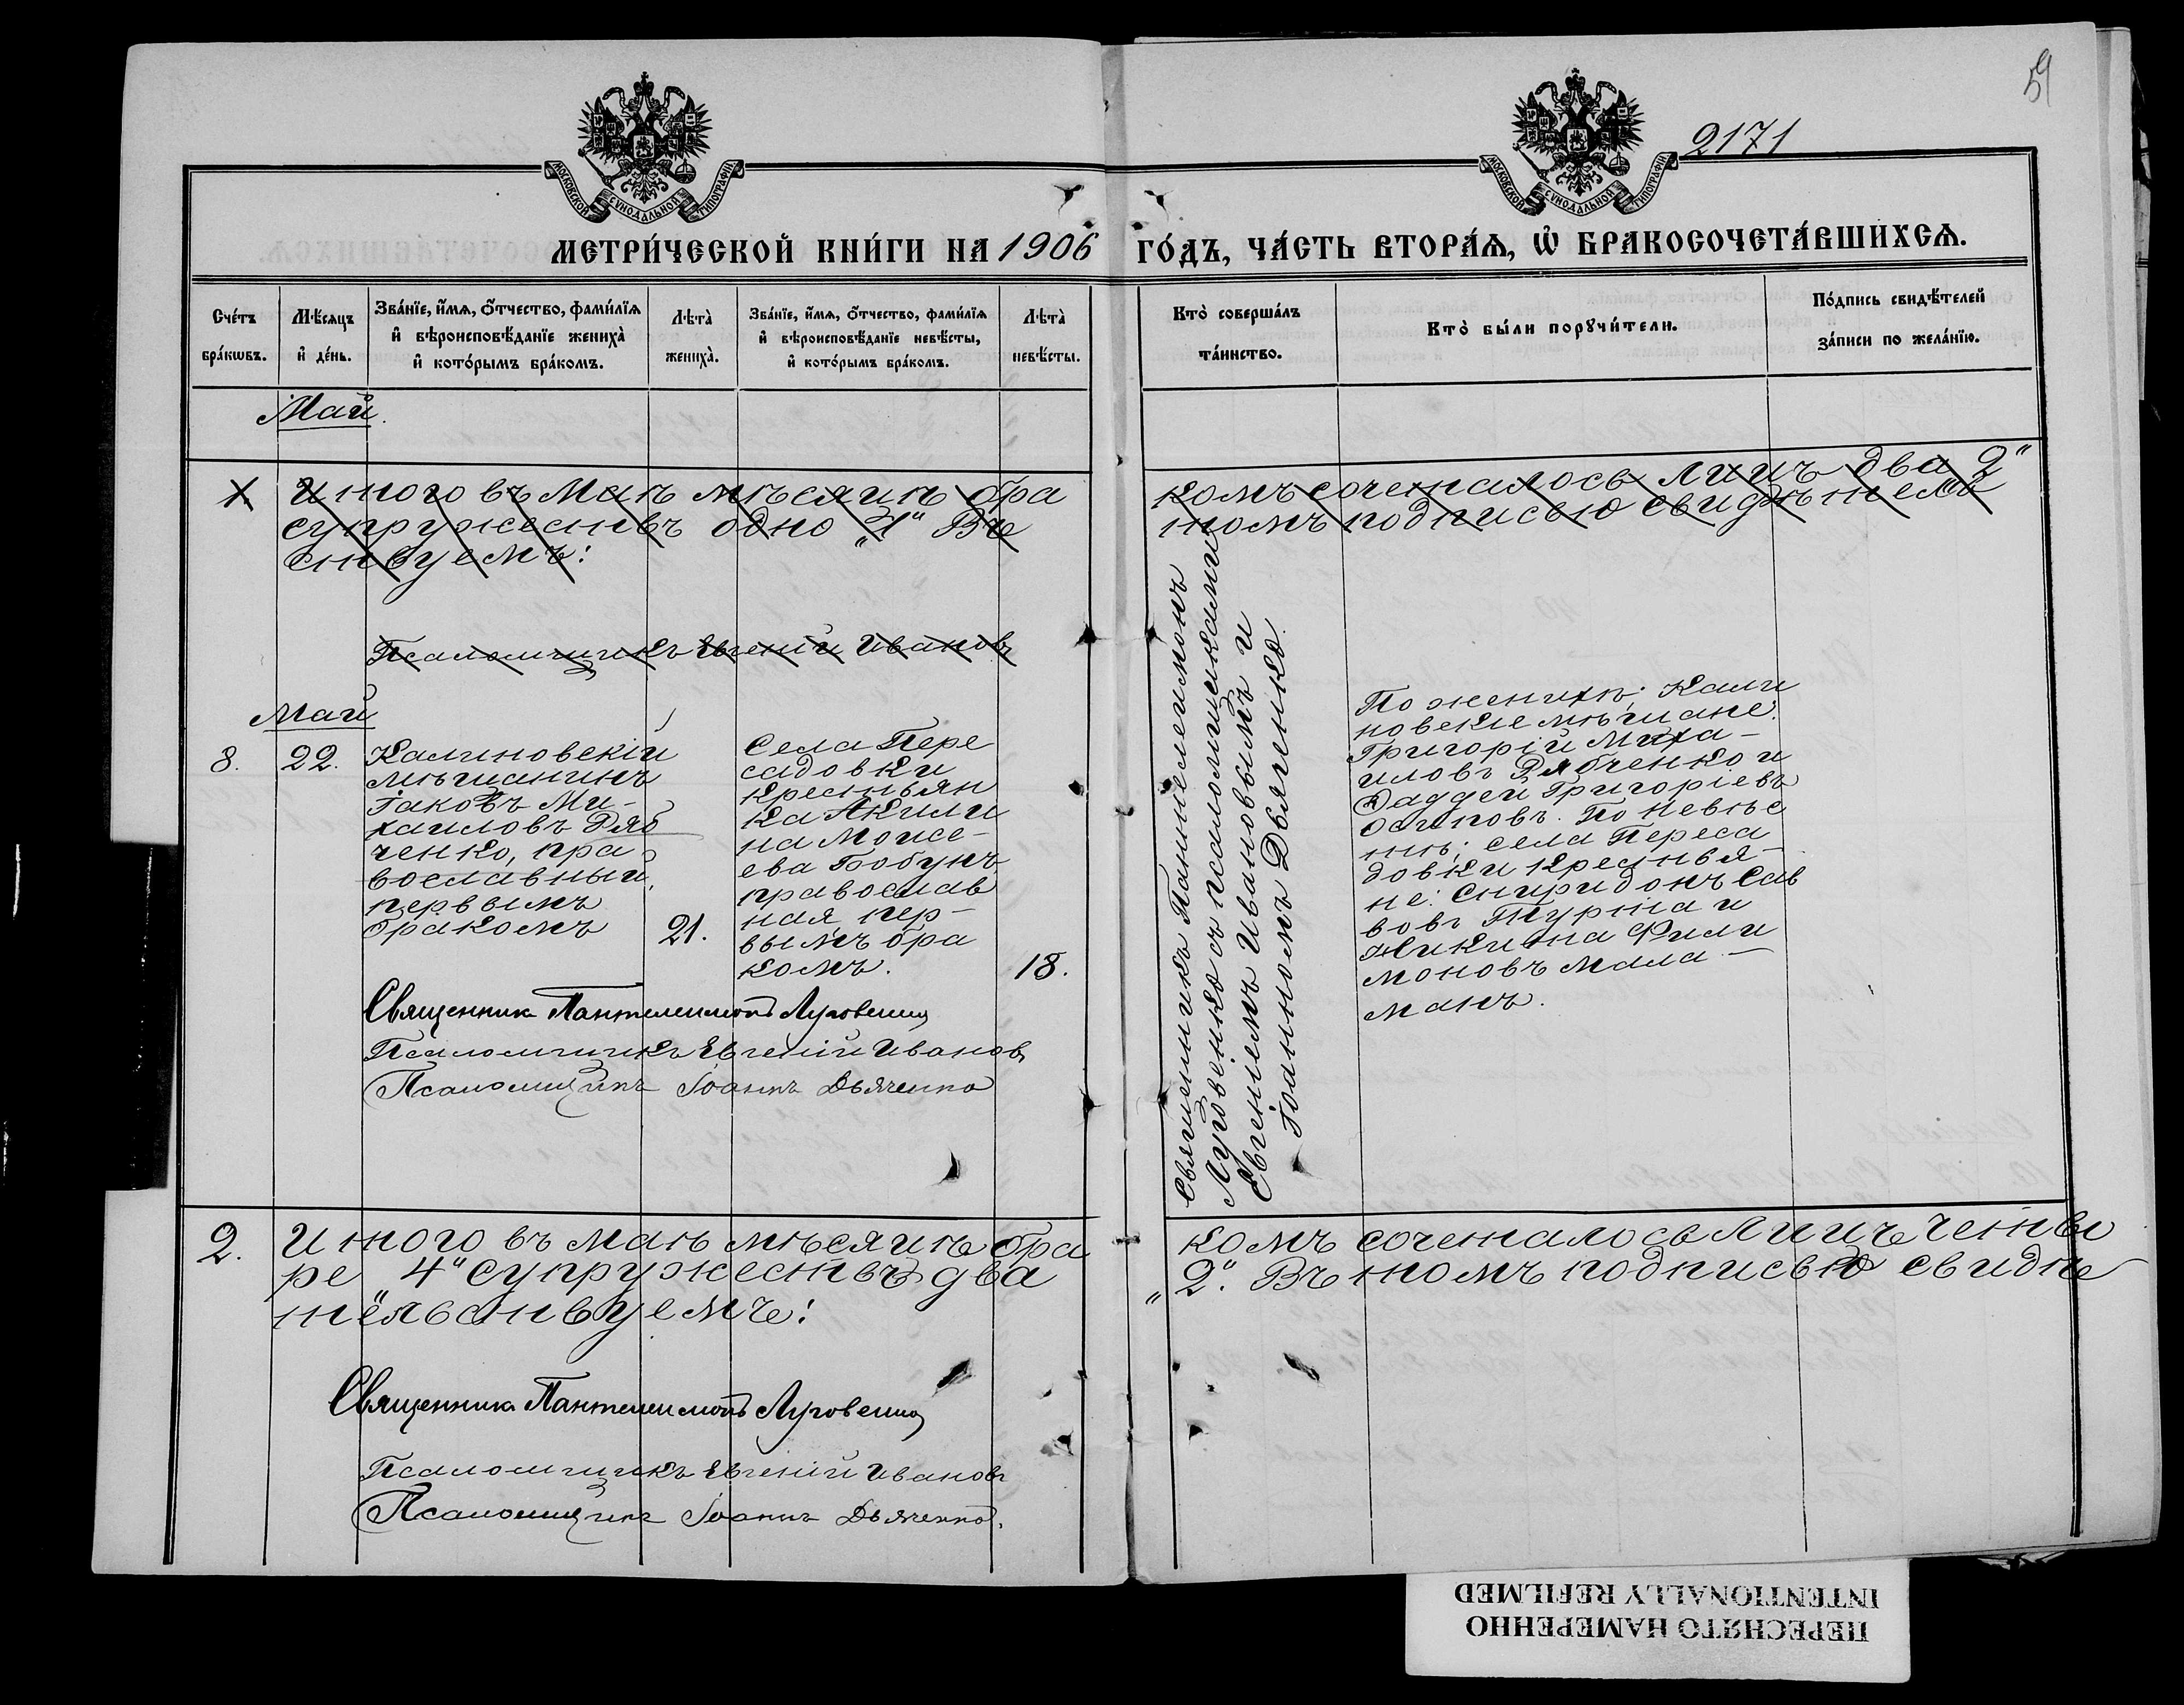 59
2171
МОСКОВСКОЙ СѴНОДАЛЬНОЙ ТИПОГРАФІИ
МОСКОВСКОЙ СѴНОДАЛЬНОЙ ТИПОГРАФІИ
МЕТРИ́ЧЕСКОЙ КНИ́ГИ НА 1906 ГО́ДЪ, ЧА́СТЬ ВТОРА́Ѧ, Ѽ БРАКОСОЧЕТА́ВШИХСѦ.
Сче́тъ бра́кѡвъ.
Мѣ́сяцъ и҆ де́нь.
Зва́нїе, и҆́мѧ, ѻ҆́тчество, фами́лїѧ и҆ вѣроисповѣ́данїе жениха̀ и҆ кото́рымъ бра́комъ.
Лѣта̀ жениха̀.
Зва́нїе, и҆́мѧ, ѻ҆́тчество, фами́лїѧ и҆ вѣроисповѣ́данїе невѣ́сты, и҆ кото́рымъ бра́комъ.
Лѣта̀ невѣ́сты.
Кто̀ соверша́лъ та́инство.
Кто̀ бы́ли порꙋчи́тели.
По́дпись свидѣ́телей за́писи по жела́нїю.
Май.
1. Итого въ Маѣ мѣсяцѣ бра
комъ сочеталось лицъ два 2"
супружествъ одно „1" Въ
томъ подписью свидѣтель
ствуемъ:
Псаломщикъ Евгеній Ивановъ
Май
8. 22.
Калиновскій
мѣщанинъ
Іаковъ Ми-
хаиловъ Ряб
ченко, пра-
вославный,
первымъ
бракомъ
21.
Села Пере
садовки
крестьян
ка Акили
на Моисе-
ева Бобунъ,
православ
ная, пер-
вымъ бра
комъ.
18.
Священникъ Пантелеимонъ
Луговенко съ псаломщиками
Евгеніемъ Ивановымъ и
Іоанномъ Дьяченко.
По женихѣ; Кали
новскіе мѣщане:
Григорій Миха-
иловъ Рябченко и
Фаддей Григоріевъ
Осиповъ. По невѣс
тѣ; села Переса
довки крестья-
не: Спиридонъ Сав
вовъ Турта и
Никита Фили
моновъ Мала-
манъ.
Священникъ Пантелеимонъ Луговенко
Псаломщикъ Евгеній Ивановъ
Псаломщикъ Іоаннъ Дьяченко
2. Итого въ маѣ мѣсяцѣ бра
комъ сочеталось лицъ четы
ре „4" супружествъ два
„2". Въ томъ подписью свидѣ
тельствуемъ:
Священникъ Пантелеимонъ Луговенко
Псаломщикъ Евгеній Ивановъ
Псаломщикъ Іоаннъ Дьяченко.
ПЕРЕСНЯТО НАМЕРЕННО
INTENTIONALLY REFILMED